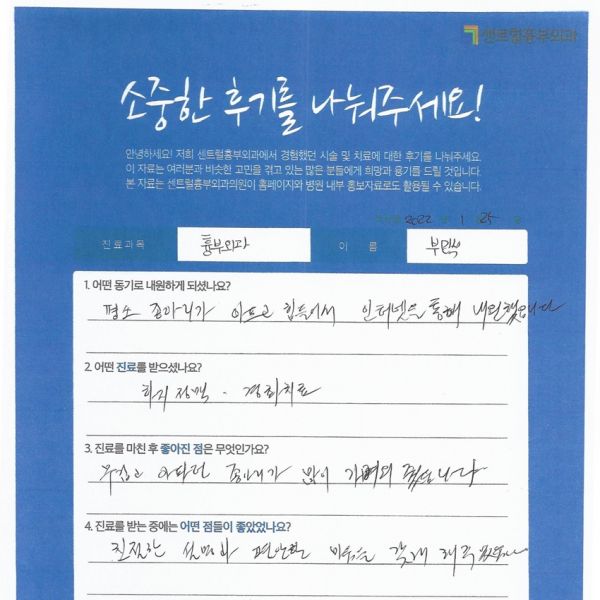 센트럴흉부외과
소중한 후기를 나눠주세요!
안녕하세요! 저희 센트럴흉부외과에서 경험했던 시술 및 치료에 대한 후기를 나눠주세요.
이 자료는 여러분과 비슷한 고민을 겪고 있는 많은 분들에게 희망과 용기를 드릴 것입니다.
본 자료는 센트럴흉부외과의원이 홈페이지와 병원 내부 홍보자료로도 활용될 수 있습니다.
2022 1 25
진료과목 흉부외과 이 름
1. 어떤 동기로 내원하게 되셨나요?
평소 종아리가 아프고 힘들어서 인터넷을 통해 내원했습니다
2. 어떤 진료를 받으셨나요?
하지정맥 - 경화치료
3. 진료를 마친 후 좋아진 점은 무엇인가요?
무겁고 아프던 종아리가 많이 가벼워 졌습니다
4. 진료를 받는 중에는 어떤 점들이 좋았었나요?
친절한 설명과 편안한 마음을 갖게 해주